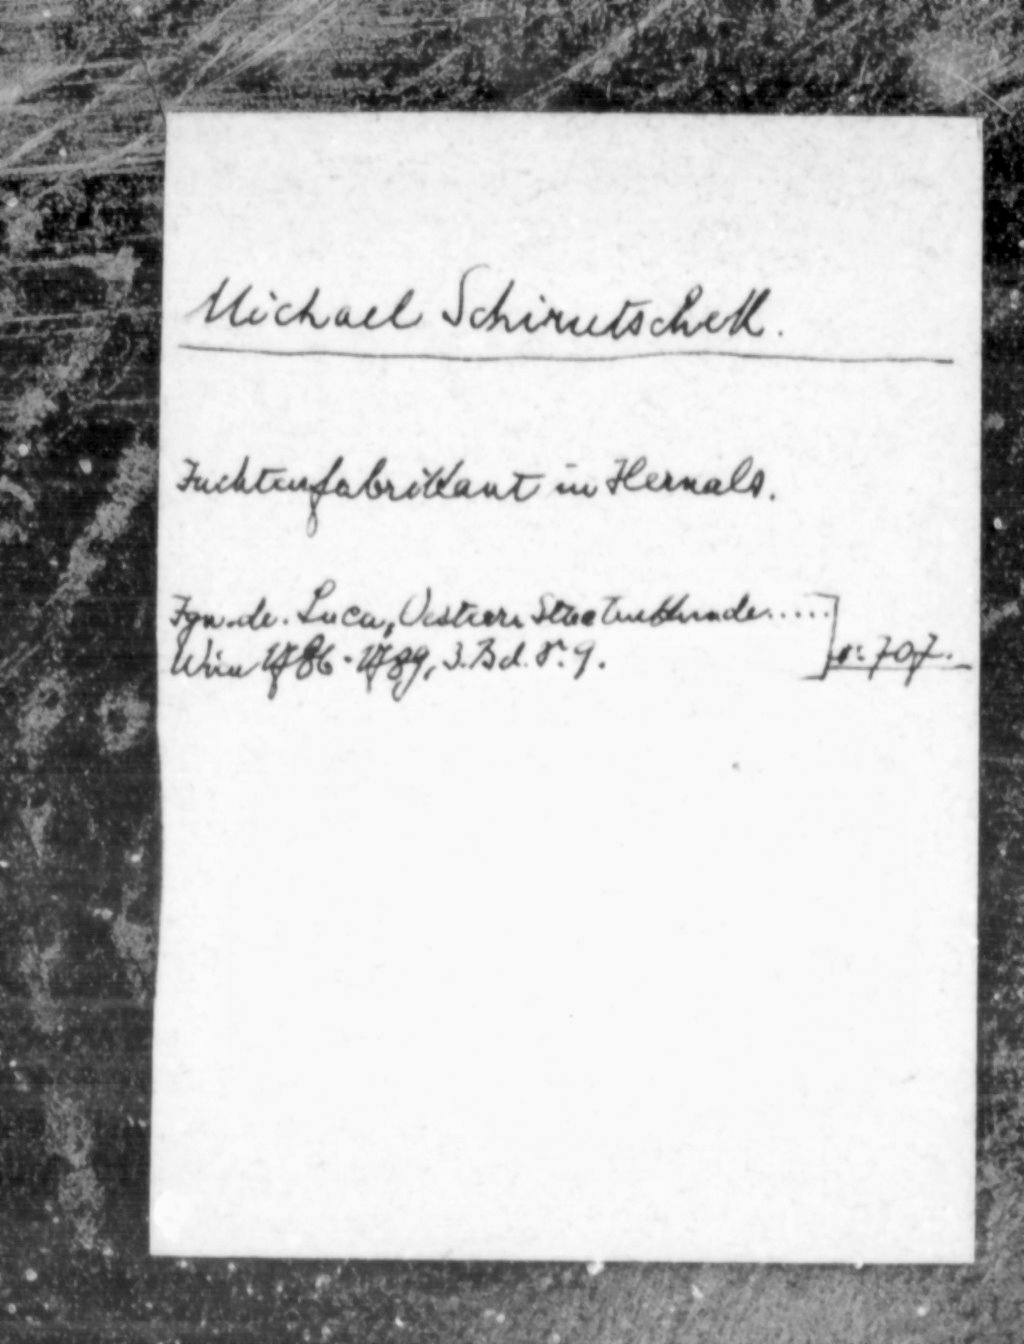 Michael Schirutschek.
Juchtenfabrikant in Hernals.
Ign. de. Luca, Oesterr. Staatenkunde.....
Wien 1786-1789, 3. Bd. S. 9.
s: 707.